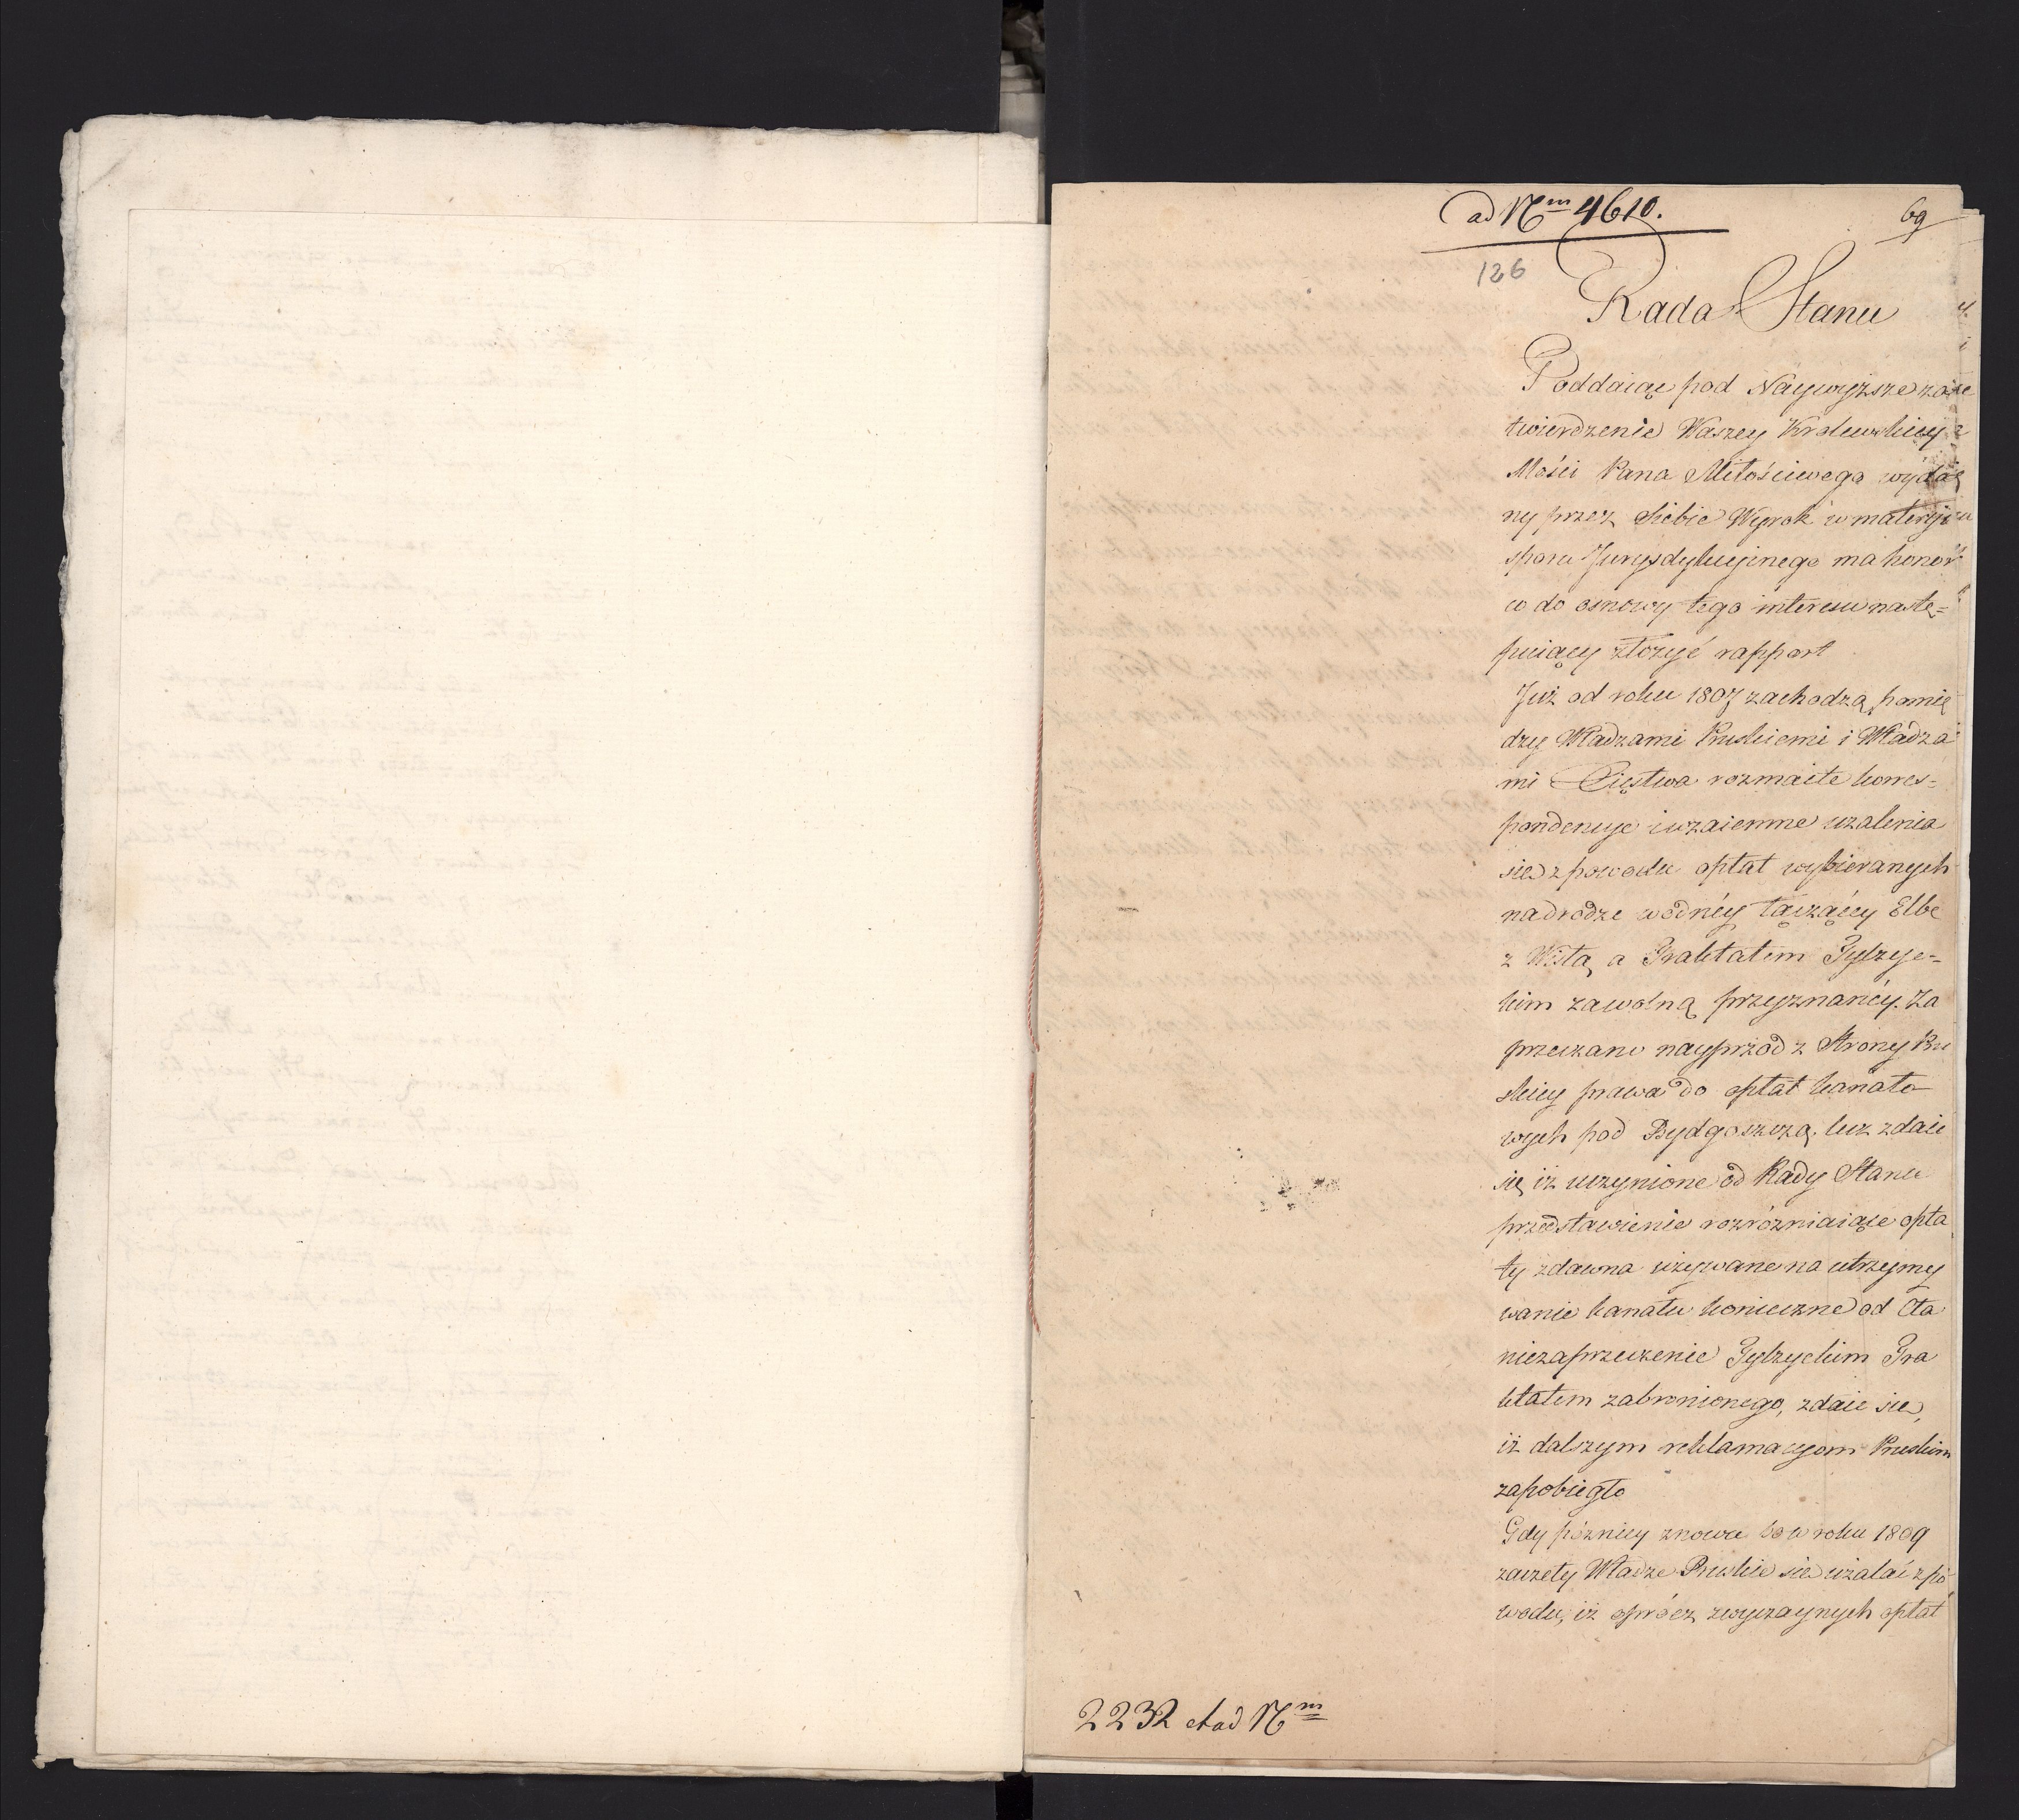 ad Nm 4610.
69
126
Rada Stanu
Poddaiąc pod Naywyższe za
twierdzenie Waszey Krolewskiey
Mości Pana Miłościwego wyda
ny przez Siebie Wyrok w materyi
sporu Jurysdykcyinego ma honor
co do osnowy tego interesu nastę=
puiący złożyć rapport
Już od roku 1807 zachodzą pomię
dzy Władzami Pruskiemi i Władza
mi Xięstwa rozmaite korres=
pondencye i wzaiemne użalenia
sie z powodu opłat wybieranych
na drodze wodnéy łączącéy Elbe
z Wisłą a Traktatem Tylzyc=
kim za wolną przyznanéy. Za
przeczano nayprzód z Strony Pru
skiey prawa do opłat kanało
wych pod Bydgoszczą. lecz zdaie
się iż uczynione od Rady Stanu
przedstawienie rozróżniaiące opła
ty zdawna używane na utrzymy
wanie kanału konieczne od Cła
niezaprzeczenie Tylzyckim Tra
ktatem zabronionego, zdaie sie,
iż dalszym reklamacyom Pruskim
zapobiegło
Gdy pózniey znowu bo w roku 1809
zaczeły Władze Pruskie sie użalać z po
wodu, iż oprócz zwyczaynych opłat
2232 et ad Nm